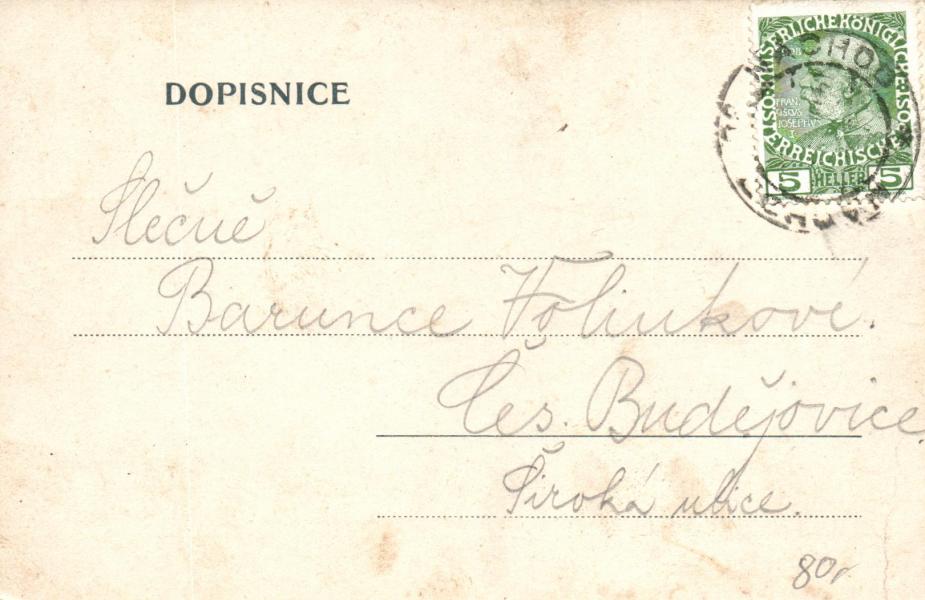 DOPISNICE
KAISERLICHE KÖNIGLICHE
ÖSTERREICHISCHE
5 HELLER 5
NACHOD
Slečně
Barunce Volinkové.
Čes. Budějovice
Široká ulice.
80,-